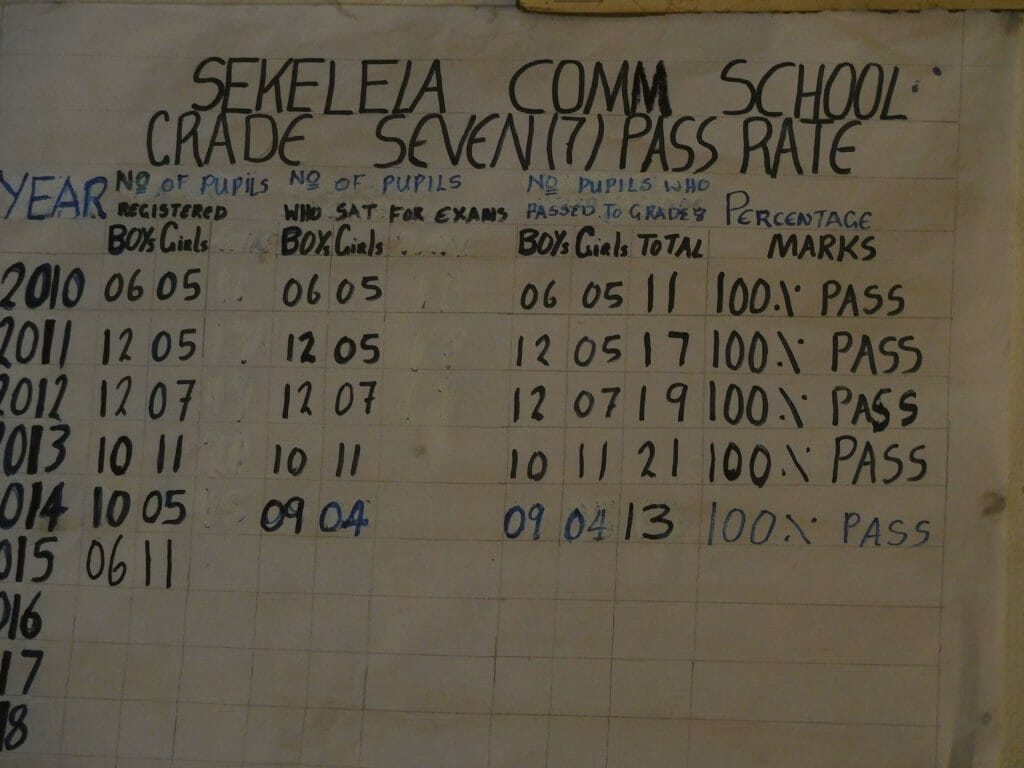 SEKELELA COMM SCHOOL
GRADE SEVEN (7) PASS RATE
YEAR No OF PUPILS No OF PUPILS No PUPILS WHO
REGISTERED WHO SAT FOR EXAMS PASSED TO GRADE 8 PERCENTAGE
BOYs Girls BOYs Girls BOYs Girls TOTAL MARKS
2010 06 05 06 05 06 05 11 100% PASS
2011 12 05 12 05 12 05 17 100% PASS
2012 12 07 12 07 12 07 19 100% PASS
2013 10 11 10 11 10 11 21 100% PASS
014 10 05 09 04 09 04 13 100% PASS
015 06 11
016
17
18